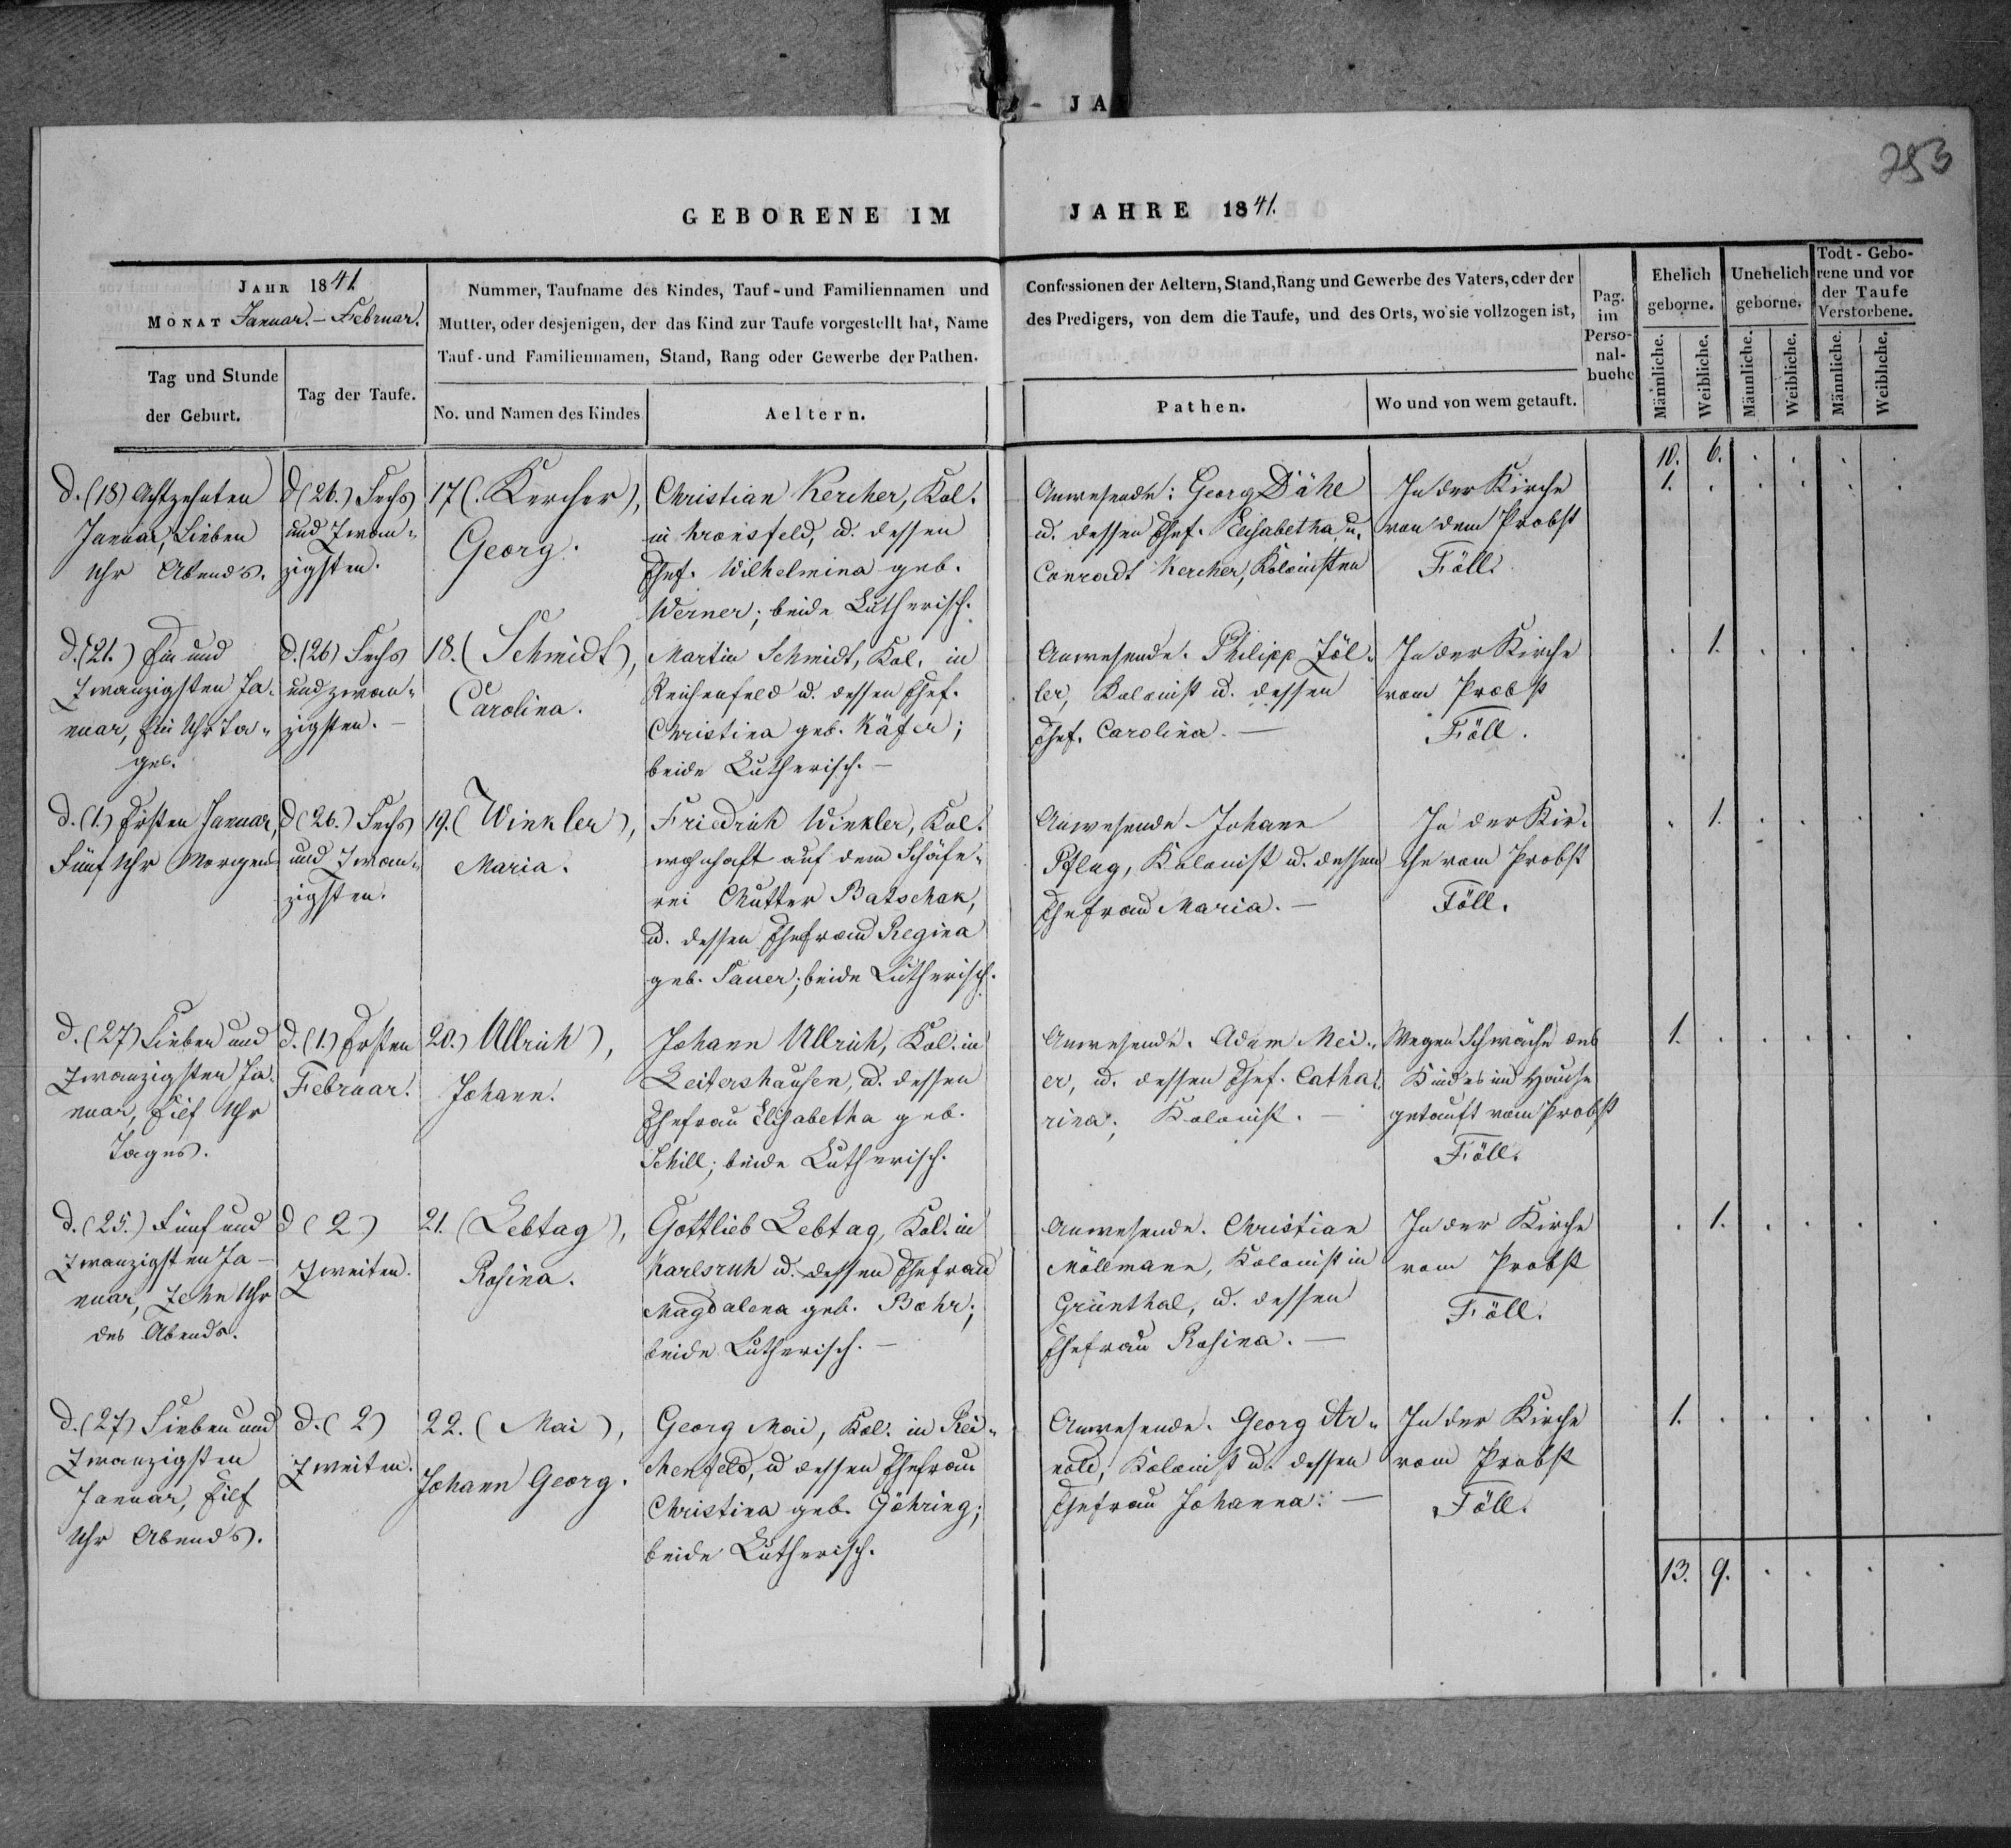 JA
253
GEBORENE IM JAHRE 1841.
JAHR 1841
MONAT Januar. - Februar.
Tag und Stunde
der Geburt.
Tag der Taufe.
Nummer, Taufname des Kindes, Tauf-und Familiennamen und
Mutter, oder desjenigen, der das Kind zur Taufe vorgestellt hat, Name
Tauf-und Familiennamen, Stand, Rang oder Gewerbe der Pathen.
No. und Namen des Kindes
Aeltern.
Confessionen der Aeltern, Stand, Rang und Gewerbe des Vaters, oder der
des Predigers, von dem die Taufe, und des Orts, wo sie vollzogen ist,
Pathen.
Wo und von wem getauft.
Pag.
im
Perso-
nal-
buche
Ehelich
geborne.
Unehelich
geborne.
Todt-Gebo-
rene und vor
der Taufe
Verstorbene.
Männliche.
Weibliche.
Männliche.
Weibliche.
Männliche.
Weibliche.
10. 6. . . . .
d. (18) Achtzehnten
Januar, Sieben
Uhr Abends.
d (26.) Sechs
und Zwan-
zigsten.
17 (. Kercher),
Georg.
Christian Kercher, Kol.
in Kronsfeld, u. dessen
Ehef. Wilhelmina geb.
Werner; beide Lutherisch.
Anwesende: Georg Dähl
u. dessen Ehef. Elisabetha, u.
Conradt Kercher, Kolonisten
In der Kirche
von dem Probst
Föll.
1. . . . . .
d. (21.) Ein und
Zwanzigsten Ja-
nuar, Ein Uhr Ta-
ges.
d. (26) Sechs
und zwan-
zigsten. -
18. (Schmidt),
Carolina.
Martin Schmidt, Kol. in
Reichenfeld u. dessen Ehef.
Christina geb. Käfer;
beide Lutherisch. -
Anwesende. Philipp Zöl-
ler, Kolonist u. dessen
Ehef. Carolina. -
In der Kirche
vom Probst
Föll.
. 1. . . . .
d. (1.) Ersten Januar,
Fünf Uhr Morgens
d (26.) Sechs
und Zwan-
zigsten.
19. (Winkler),
Maria.
Friedrich Winkler, Kol.
wohnhaft auf dem Schäfe-
rei Chutter Batschak,
u. dessen Ehefrau Regina
geb. Sauer; beide Lutherisch.
Anwesende Johann
Pflug, Kolonist u. dessen
Ehefrau Maria. -
In der Kir-
che vom Probst
Föll.
. 1. . . . .
d. (27) Sieben und
Zwanzigsten Ja-
nuar, Eilf Uhr
Tages.
d. (1.) Ersten
Februar.
20.) Ullrich),
Johann.
Johann Ullrich, Kol. in
Leitershausen, u. dessen
Ehefrau Elisabetha geb.
Schill; beide Lutherisch.
Anwesende. Adam Mei-
er, u. dessen Ehef. Catha-
rina; Kolonist. -
Wegen Schwäche des
Kindes im Hause
getauft vom Probst
Föll.
1. . . . . .
d. (25.) Fünf und
Zwanzigsten Ja-
nuar, Zehn Uhr
des Abends.
d (2)
Zweiten.
21. (Lebtag),
Rosina.
Gottlieb Lebtag, Kol. in
Karlsruh u. dessen Ehefrau
Magdalena geb. Bohr;
beide Lutherisch. -
Anwesende. Christian
Möllmann, Kolonist in
Grünthal, u. dessen
Ehefrau Rosina. -
In der Kirche
vom Probst
Föll.
. 1. . . . .
d. (27) Sieben und
Zwanzigsten
Januar, Eilf
Uhr Abends.
d. (2)
Zweiten.
22. (Mai),
Johann Georg.
Georg Mai, Kol. in Rei-
chenfeld, u dessen Ehefrau
Christina geb. Göhring;
beide Lutherisch.
Anwesende. Georg Ar-
nold, Kolonist u. dessen
Ehefrau Johanna. -
In der Kirche
vom Probst
Föll.
1. . . . . .
13. 9. . . . .